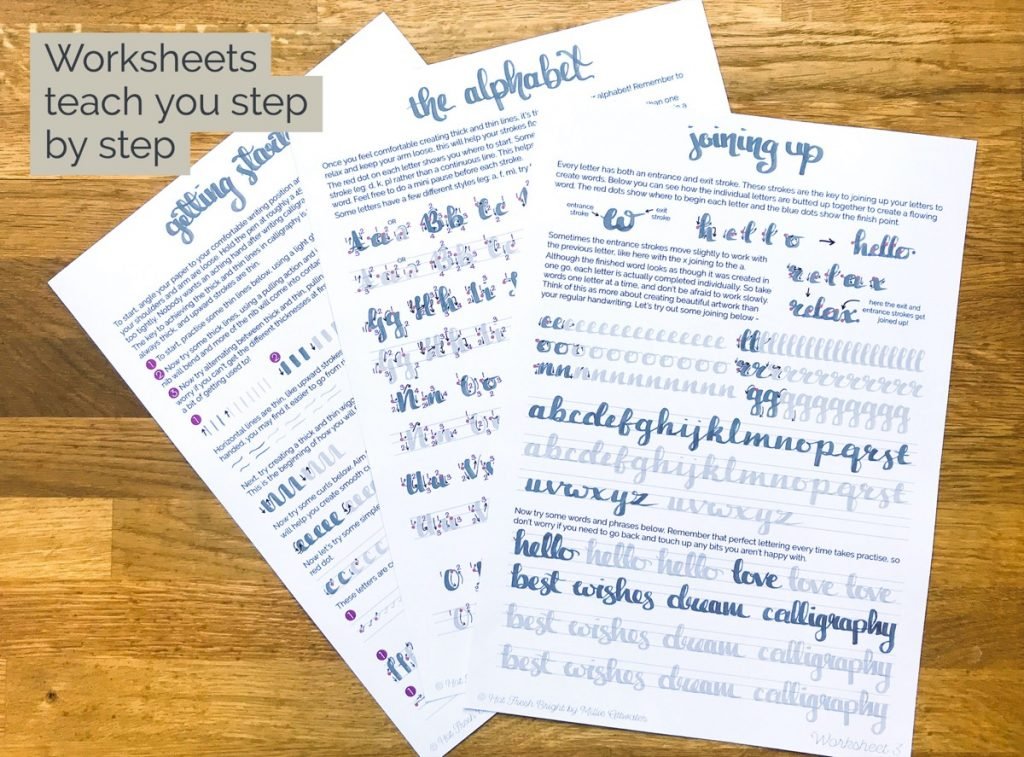 Worksheets
teach you step
by step
getting start
To start, angle your paper to your comfortable writing position
your shoulders and arm are loose. Hold the pen at roughly a 45
too tightly. Nobody wants an aching hand after writing
The key to achieving the thick and thin lines in calligraphy is
always thick, and upward strokes are
1 To start, practise some thin lines below, using a light
2 Now try some thick lines, using a pulling action and
nib will bend and more of the nib will come into
3 Now try alternating between thick and thin,
worry if you can't get the different thicknesses at
a bit of getting used to!
1
2
Horizontal lines are thin, like upward strokes
handed, you may find it easier to go from
Next, try creating a thick and thin
This is the beginning of how you will
Now try some curls below. Aim
will help you create smooth
Now let's try some simple
red dot.
These letters are
1
1
1
the alphabet
Once you feel comfortable creating thick and thin lines, it's alphabet! Remember to
relax and keep your arm loose, this will help your strokes
The red dot on each letter shows you where to start. Some than one
stroke (eg. d, k, p) rather than a continuous line. This
word. Feel free to do a mini pause before each stroke.
Some letters have a few different styles (eg. a, f, m), try
OR
OR
joining up
Every letter has both an entrance and exit stroke. These strokes are the key to joining up your letters to
create words. Below you can see how the individual letters are butted up together to create a flowing
word. The red dots show where to begin each letter and the blue dots show the finish point.
entrance
stroke
w
exit
stroke
h e l l o → hello
Sometimes the entrance strokes move slightly to work with
the previous letter, like here with the x joining to the a.
Although the finished word looks as though it was created in
one go, each letter is actually completed individually. So take
words one letter at a time, and don't be afraid to work slowly.
Think of this as more about creating beautiful artwork than
your regular handwriting. Let's try out some joining below -
r e l a x
relax
here the exit and
entrance strokes get
joined up!
abcdefghijklmnopqrst
abcdefghijklmnopqrst
uvwxyz uvwxyz
Now try some words and phrases below. Remember that perfect lettering every time takes practise, so
don't worry if you need to go back and touch up any bits you aren't happy with.
hello hello hello love love love
best wishes dream calligraphy
best wishes dream calligraphy
best wishes dream calligraphy
© Hot Fresh Bright by Millie Attwater
Worksheet 3
© Hot Fresh
© Hot Fresh